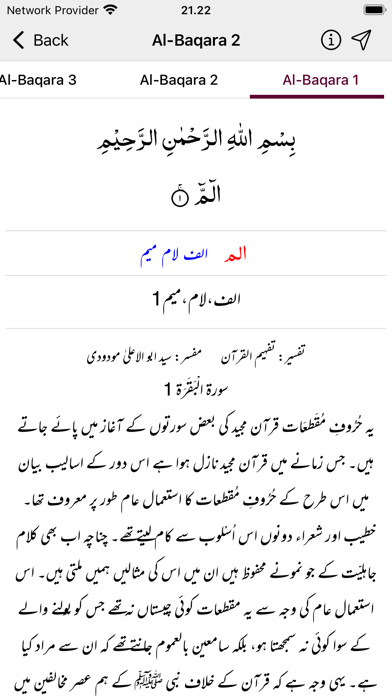 Network Provider 21.22
Back Al-Baqara 2
Al-Baqara 3 Al-Baqara 2 Al-Baqara 1
بِسْمِ اللهِ الرَّحْمٰنِ الرَّحِيْمِ
الٓمّٓ ۚ ۱
الم الف لام میم
الف،لام،میم1
تفسیر: تفہیم القرآن مفسر: سید ابو الاعلیٰ مودودی
سورة الْبَقَرَة 1
یہ حُرُوفِ مُقَطعَات قرآن مجید کی بعض سورتوں کے آغاز میں پائے جاتے
ہیں۔ جس زمانے میں قرآن مجید نازل ہوا ہے اس دور کے اسالیب بیان
میں اس طرح کے حُرُوفِ مُقطعات کا استعمال عام طور پر معروف تھا۔
خطیب اور شعراء دونوں اس اُسْلوب سے کام لیتے تھے۔ چناچہ اب بھی کلام
جاہلیّت کے جو نمونے محفوظ ہیں ان میں اس کی مثالیں ہمیں ملتی ہیں۔ اس
استعمال عام کی وجہ سے یہ مقطعات کوئی چیستاں نہ تھے جس کو بولنے والے
کے سوا کوئی نہ سمجھتا ہو، بلکہ سامعین بالعموم جانتے تھے کہ ان سے مراد کیا
ہے۔ یہی وجہ ہے کہ قرآن کے خلاف نبی ﷺ کے ہم عصر مخالفین میں